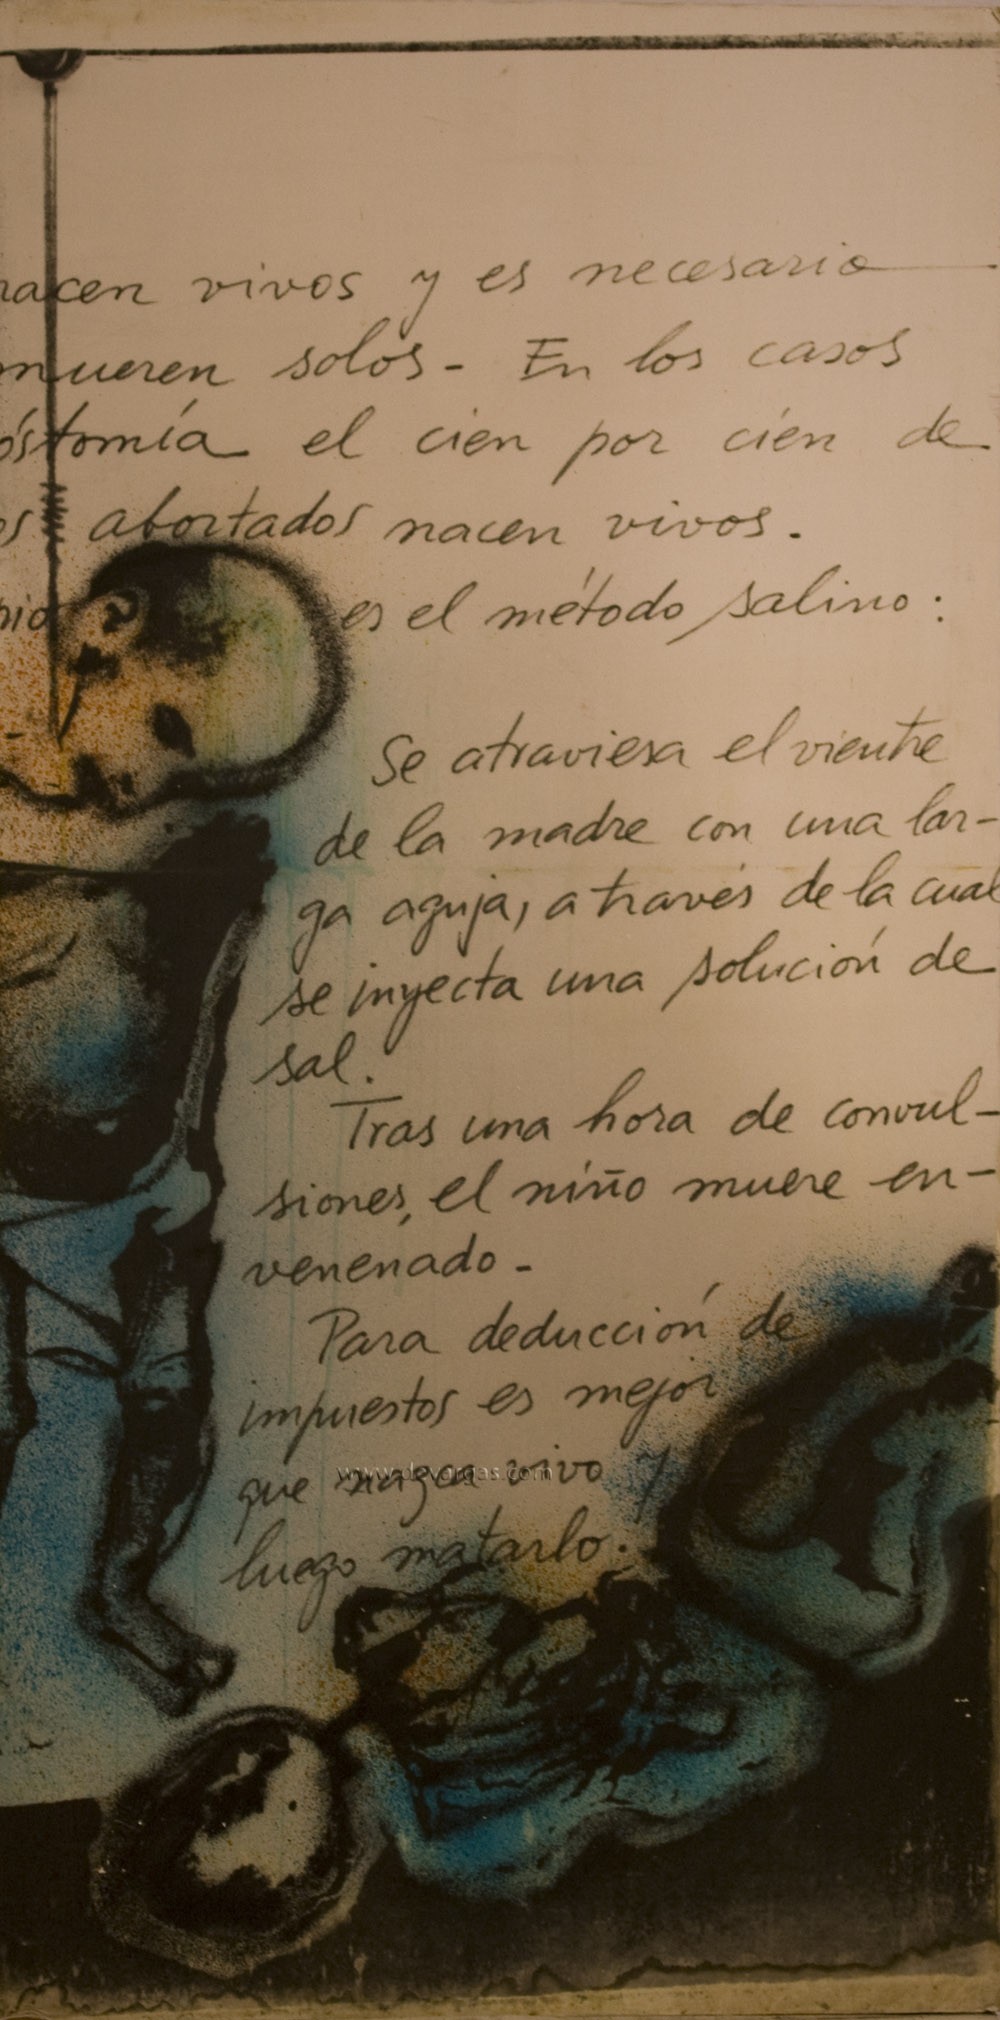 nacen vivos y es necesario
mueren solos - En los casos
óstomía el cien por cien de
os abortados nacen vivos.
es el método salino:
Se atraviesa el vientre
de la madre con una lar-
ga aguja, a través de la cual
se inyecta una solución de
sal.
Tras una hora de convul-
siones, el niño muere en-
venenado -
Para deducción de
impuestos es mejor
que nazca vivo y
www.devargas.com
luego matarlo.